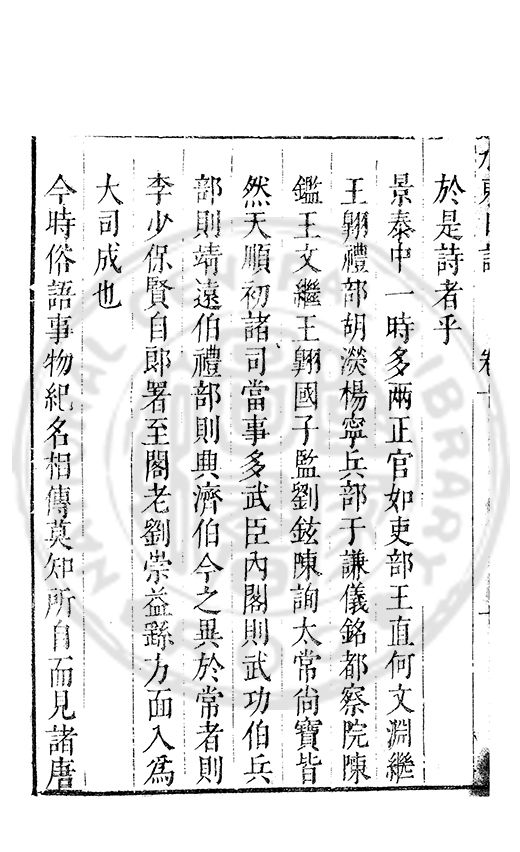 於是詩者乎
景泰中一時多兩正官如吏部王直何文淵繼
王翺禮部胡濙楊寧兵部于謙儀銘都察院陳
鑑王文繼王翺國子監劉鉉陳詢太常尚寶皆
然天順初諸司當事多武臣內閣則武功伯兵
部則靖遠伯禮部則興濟伯今之異於常者則
李少保賢自郎署至閣老劉崇益繇方面入爲
大司成也
今時俗語事物紀名相傳莫知所自而見諸唐